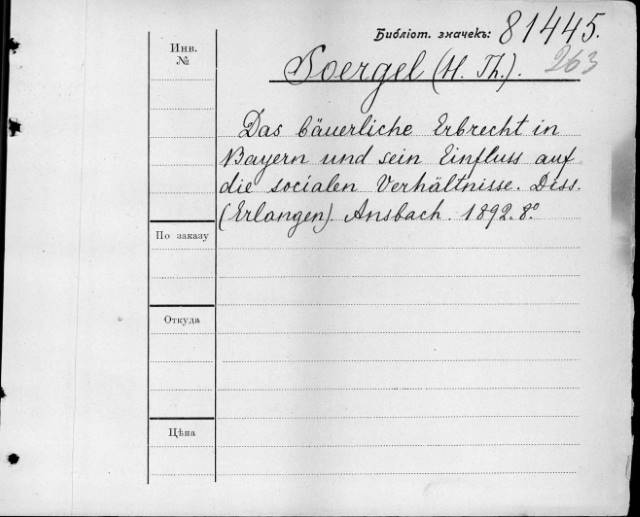 Библіот. значекъ: 81445.
263
Инв.
№
Soergel (H. Th.).
Das bäuerliche Erbrecht in
Bayern und sein Einfluss auf
die socialen Verhältnisse. Diss.
(Erlangen). Ansbach. 1892. 8°
По заказу
Откуда
Цѣна